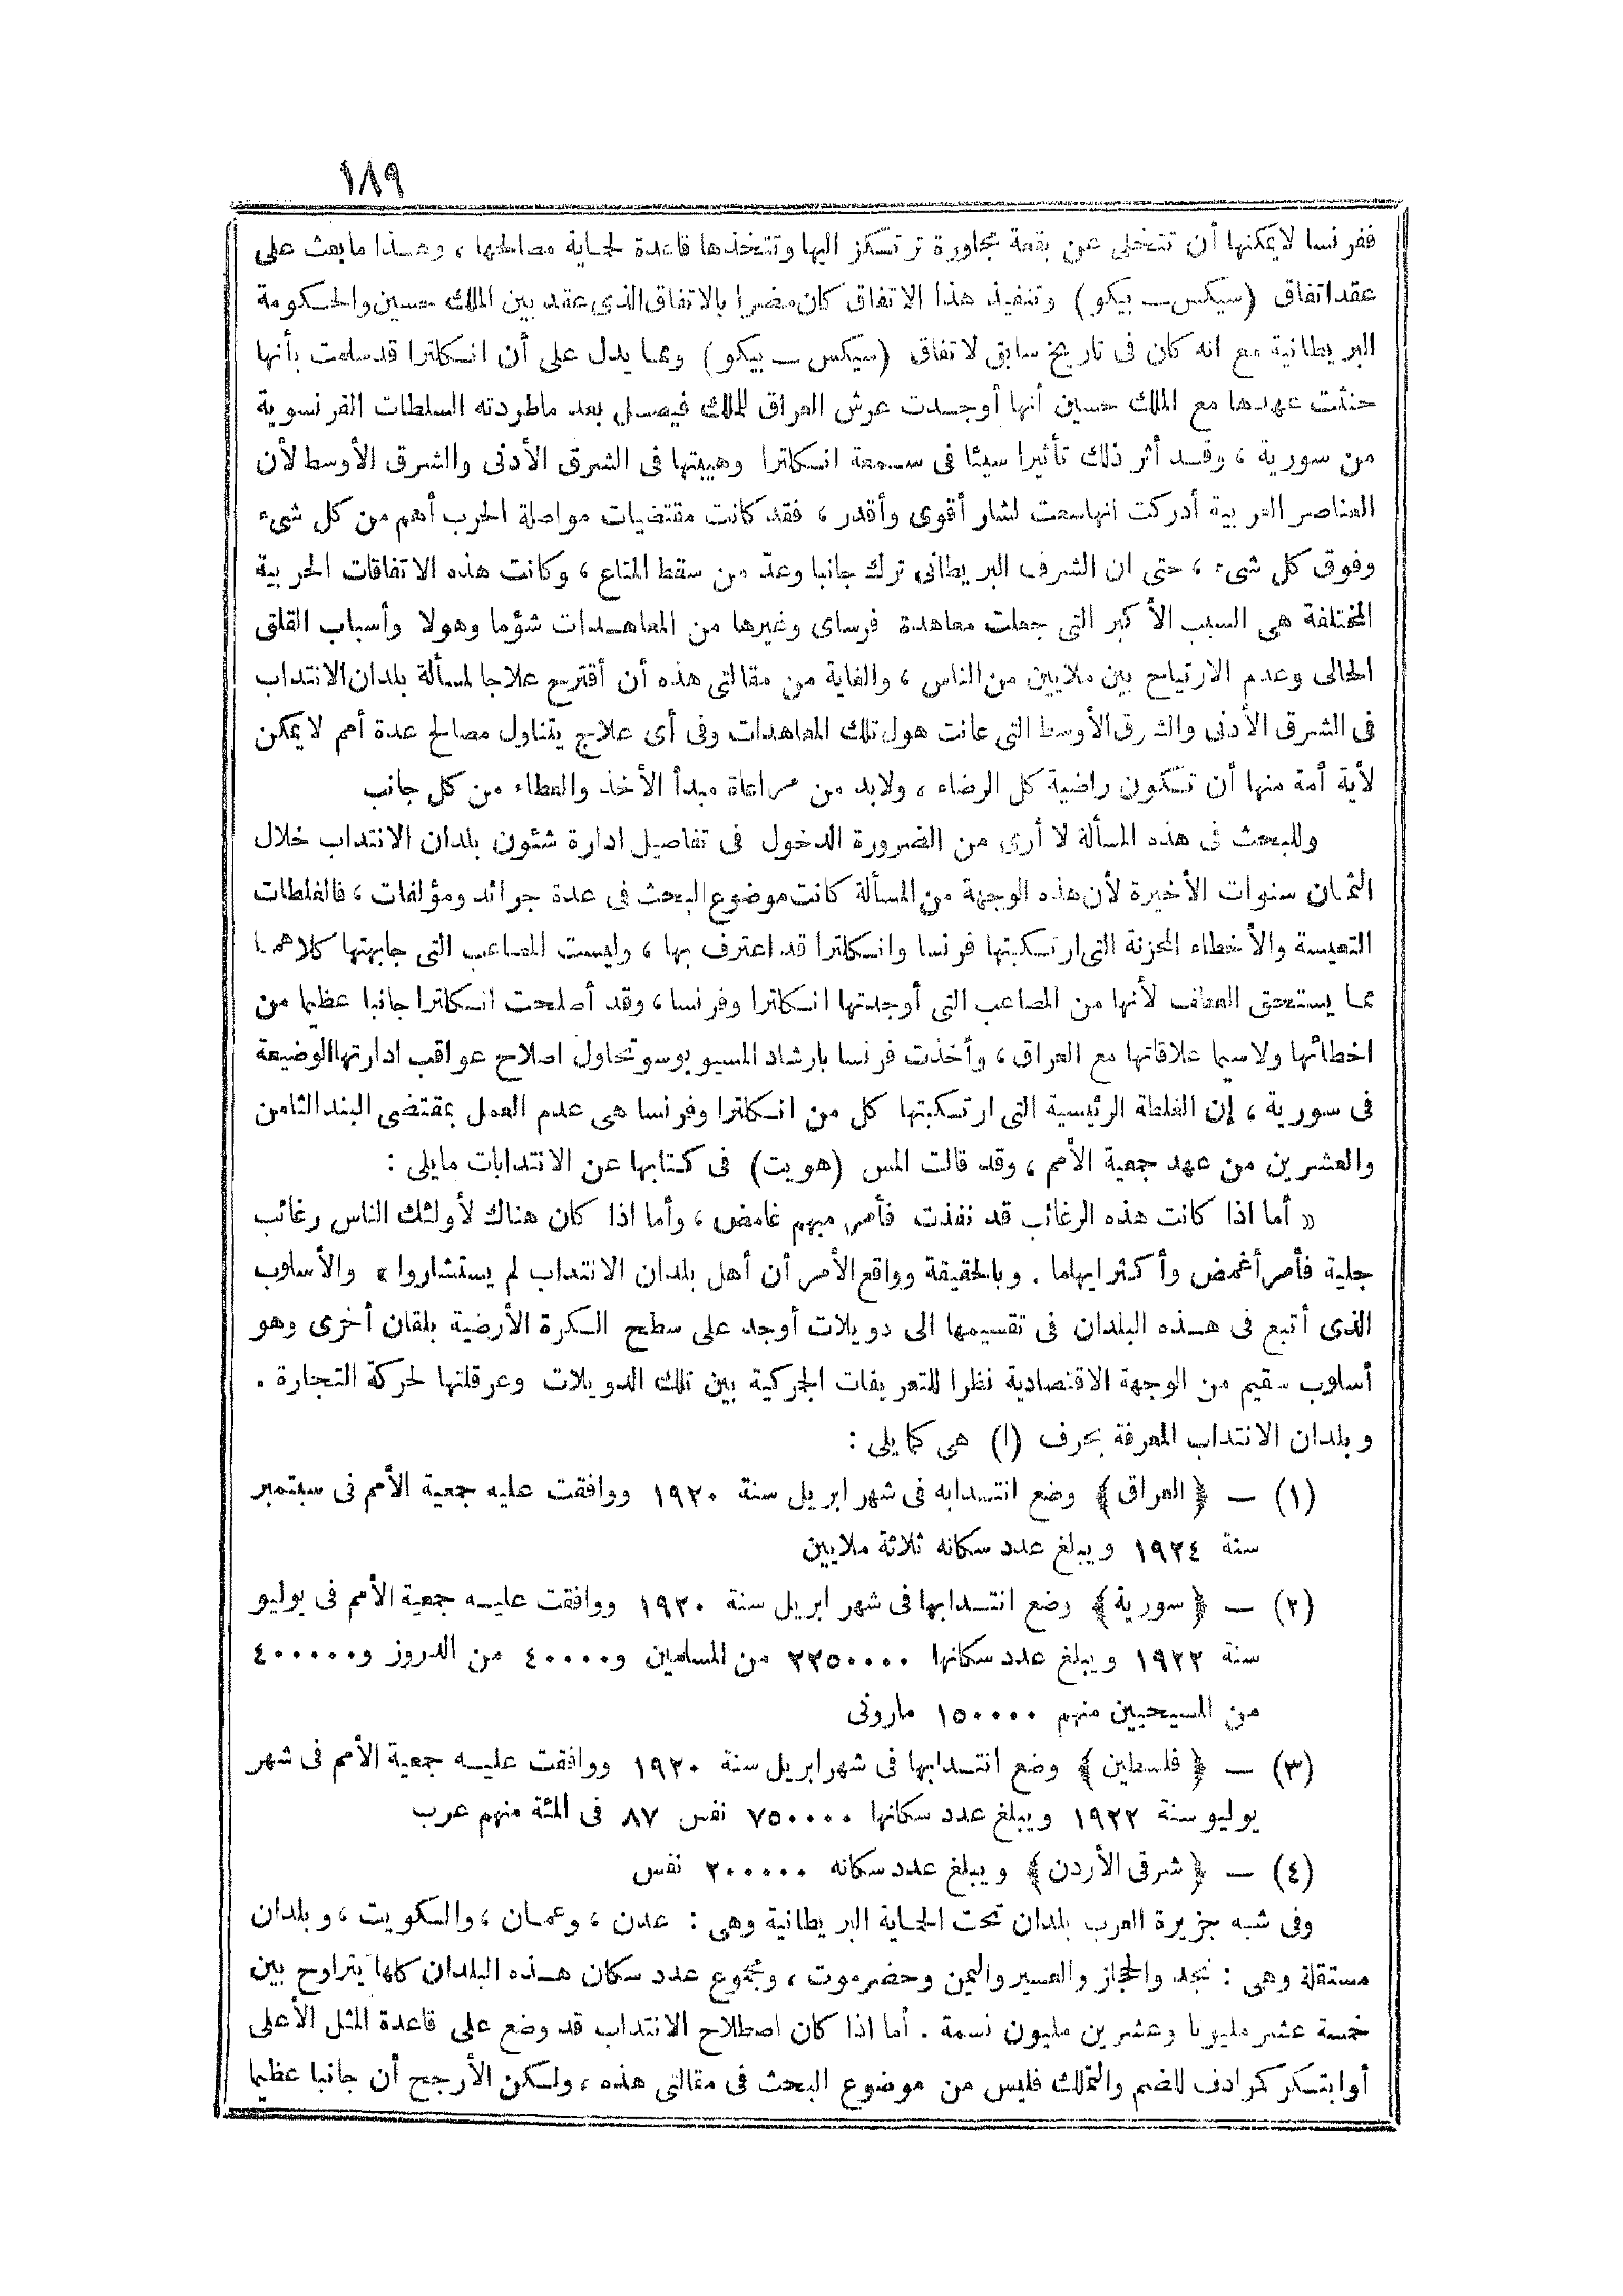 ١٨٩
ففرنسا لايمكنها أن تتخلى عن بقعة مجاورة ترتكز اليها وتتخذها قاعدة لحماية مصالحها ، وهذا مابعث على
عقد اتفاق (سيكس ــ بيكو) وتنفيذ هذا الاتفاق كان مضرا بالاتفاق الذى عقد بين الملك حسين والحكومة
البريطانية مع انه كان فى تاريخ سابق لاتفاق (سيكس ــ بيكو) ومما يدل على أن انكلترا قد سلمت بأنها
حنثت عهدها مع الملك حسين أنها أوجدت عرش العراق للملك فيصل بعد ماطردته السلطات الفرنسوية
من سورية ، وقد أثر ذلك تأثيرا سيئا فى سمعة انكلترا وهيبتها فى الشرق الأدنى والشرق الأوسط لأن
العناصر العربية أدركت انها سعت لشار أقوى وأقدر ، فقد كانت مقتضيات مواصلة الحرب أهم من كل شىء
وفوق كل شىء ، حتى ان الشرف البريطانى ترك جانبا وعدّ من سقط المتاع ، وكانت هذه الاتفاقات الحربية
المختلفة هى السبب الأكبر التى جعلت معاهدة فرساى وغيرها من المعاهدات شؤما وهولا وأسباب القلق
الحالى وعدم الارتياح بين ملايين من الناس ، والغاية من مقالتى هذه أن أقترح علاجا لمسألة بلدان الانتداب
فى الشرق الأدنى والشرق الأوسط التى عانت هول تلك المعاهدات وفى أى علاج يتناول مصالح عدة أمم لايمكن
لأية أمة منها أن تكون راضية كل الرضاء ، ولابد من مراعاة مبدأ الأخذ والعطاء من كل جانب
وللبحث فى هذه المسألة لا أرى من الضرورة الدخول فى تفاصيل ادارة شئون بلدان الانتداب خلال
الثمان سنوات الأخيرة لأن هذه الوجهة من المسألة كانت موضوع البحث فى عدة جرائد ومؤلفات ، فالغلطات
التعيسة والأخطاء المحزنة التى ارتكبتها فرنسا وانكلترا قد اعترف بها ، وليست المصاعب التى جابهتها كلاهما
مما يستحق العطف لأنها من المصاعب التى أوجدتها انكلترا وفرنسا ، وقد أصلحت انكلترا جانبا عظيما من
اخطائها ولاسيما علاقاتها مع العراق ، وأخذت فرنسا بارشاد المسيو بوسو تحاول اصلاح عواقب ادارتها الوضيعة
فى سورية ، إن الغلطة الرئيسية التى ارتكبتها كل من انكلترا وفرنسا هى عدم العمل بمقتضى البند الثامن
والعشرين من عهد جمعية الأمم ، وقد قالت المس (هويت) فى كتابها عن الانتدابات مايلى :
« أما اذا كانت هذه الرغائب قد نفذت فأمر مبهم غامض ، وأما اذا كان هناك لأولئك الناس رغائب
جلية فأمر أغمض وأكثر ايهاما . وبالحقيقة وواقع الأمر أن أهل بلدان الانتداب لم يستشاروا » والأسلوب
الذى أتبع فى هذه البلدان فى تقسيمها الى دويلات أوجد على سطح الكرة الأرضية بلقان أخرى وهو
أسلوب سقيم من الوجهة الاقتصادية نظرا للتعريفات الجمركية بين تلك الدويلات وعرقلتها لحركة التجارة .
وبلدان الانتداب المعرفة بحرف (ا) هى كمايلى :
(١) ــ ﴿العراق﴾ وضع انتدابه فى شهر ابريل سنة ١٩٢٠ ووافقت عليه جمعية الأمم فى سبتمبر
سنة ١٩٢٤ ويبلغ عدد سكانه ثلاثة ملايين
(٢) ــ ﴿سورية﴾ وضع انتدابها فى شهر ابريل سنة ١٩٢٠ ووافقت عليه جمعية الأمم فى يوليو
سنة ١٩٢٢ ويبلغ عدد سكانها ٢٢٥٠٠٠٠ من المسلمين و٤٠٠٠٠ من الدروز و٤٠٠٠٠٠
من المسيحيين منهم ١٥٠٠٠٠ مارونى
(٣) ــ ﴿فلسطين﴾ وضع انتدابها فى شهر ابريل سنة ١٩٢٠ ووافقت عليه جمعية الأمم فى شهر
يوليو سنة ١٩٢٢ ويبلغ عدد سكانها ٧٥٠٠٠٠ نفس ٨٧ فى المئة منهم عرب
(٤) ــ ﴿شرقى الأردن﴾ ويبلغ عدد سكانه ٢٠٠٠٠٠ نفس
وفى شبه جزيرة العرب بلدان تحت الحماية البريطانية وهى : عدن ، وعمان ، والكويت ، وبلدان
مستقلة وهى : نجد والحجاز والعسير واليمن وحضرموت ، ومجموع عدد سكان هذه البلدان كلها يتراوح بين
خمسة عشر مليونا وعشرين مليون نسمة . أما اذا كان اصطلاح الانتداب قد وضع على قاعدة المثل الأعلى
أوابتكر كرادف للضم والتملك فليس من موضوع البحث فى مقالتى هذه ، ولكن الأرجح أن جانبا عظيما